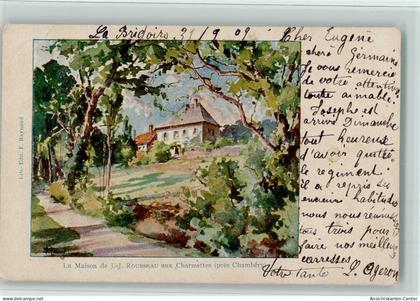 La Bridoire 21/9 09
Cher Eugène
chère Germaine
Je vous remercie
de votre attention
toute aimable.
Joseph est
arrivé Dimanche
tout heureux
d'avoir quitté
le regiment
il a repris
encore habitude
nous nous reunissons
tous trois pour
faire nos meilleures
caresses
Votre tante L. Ogeron
Lith.-Edit. F. Reynaud
La Maison de J.-J. Rousseau aux Charmettes (près Chambéry)
www.ansichtskarten-center.de
Ansichtskarten-Center.de